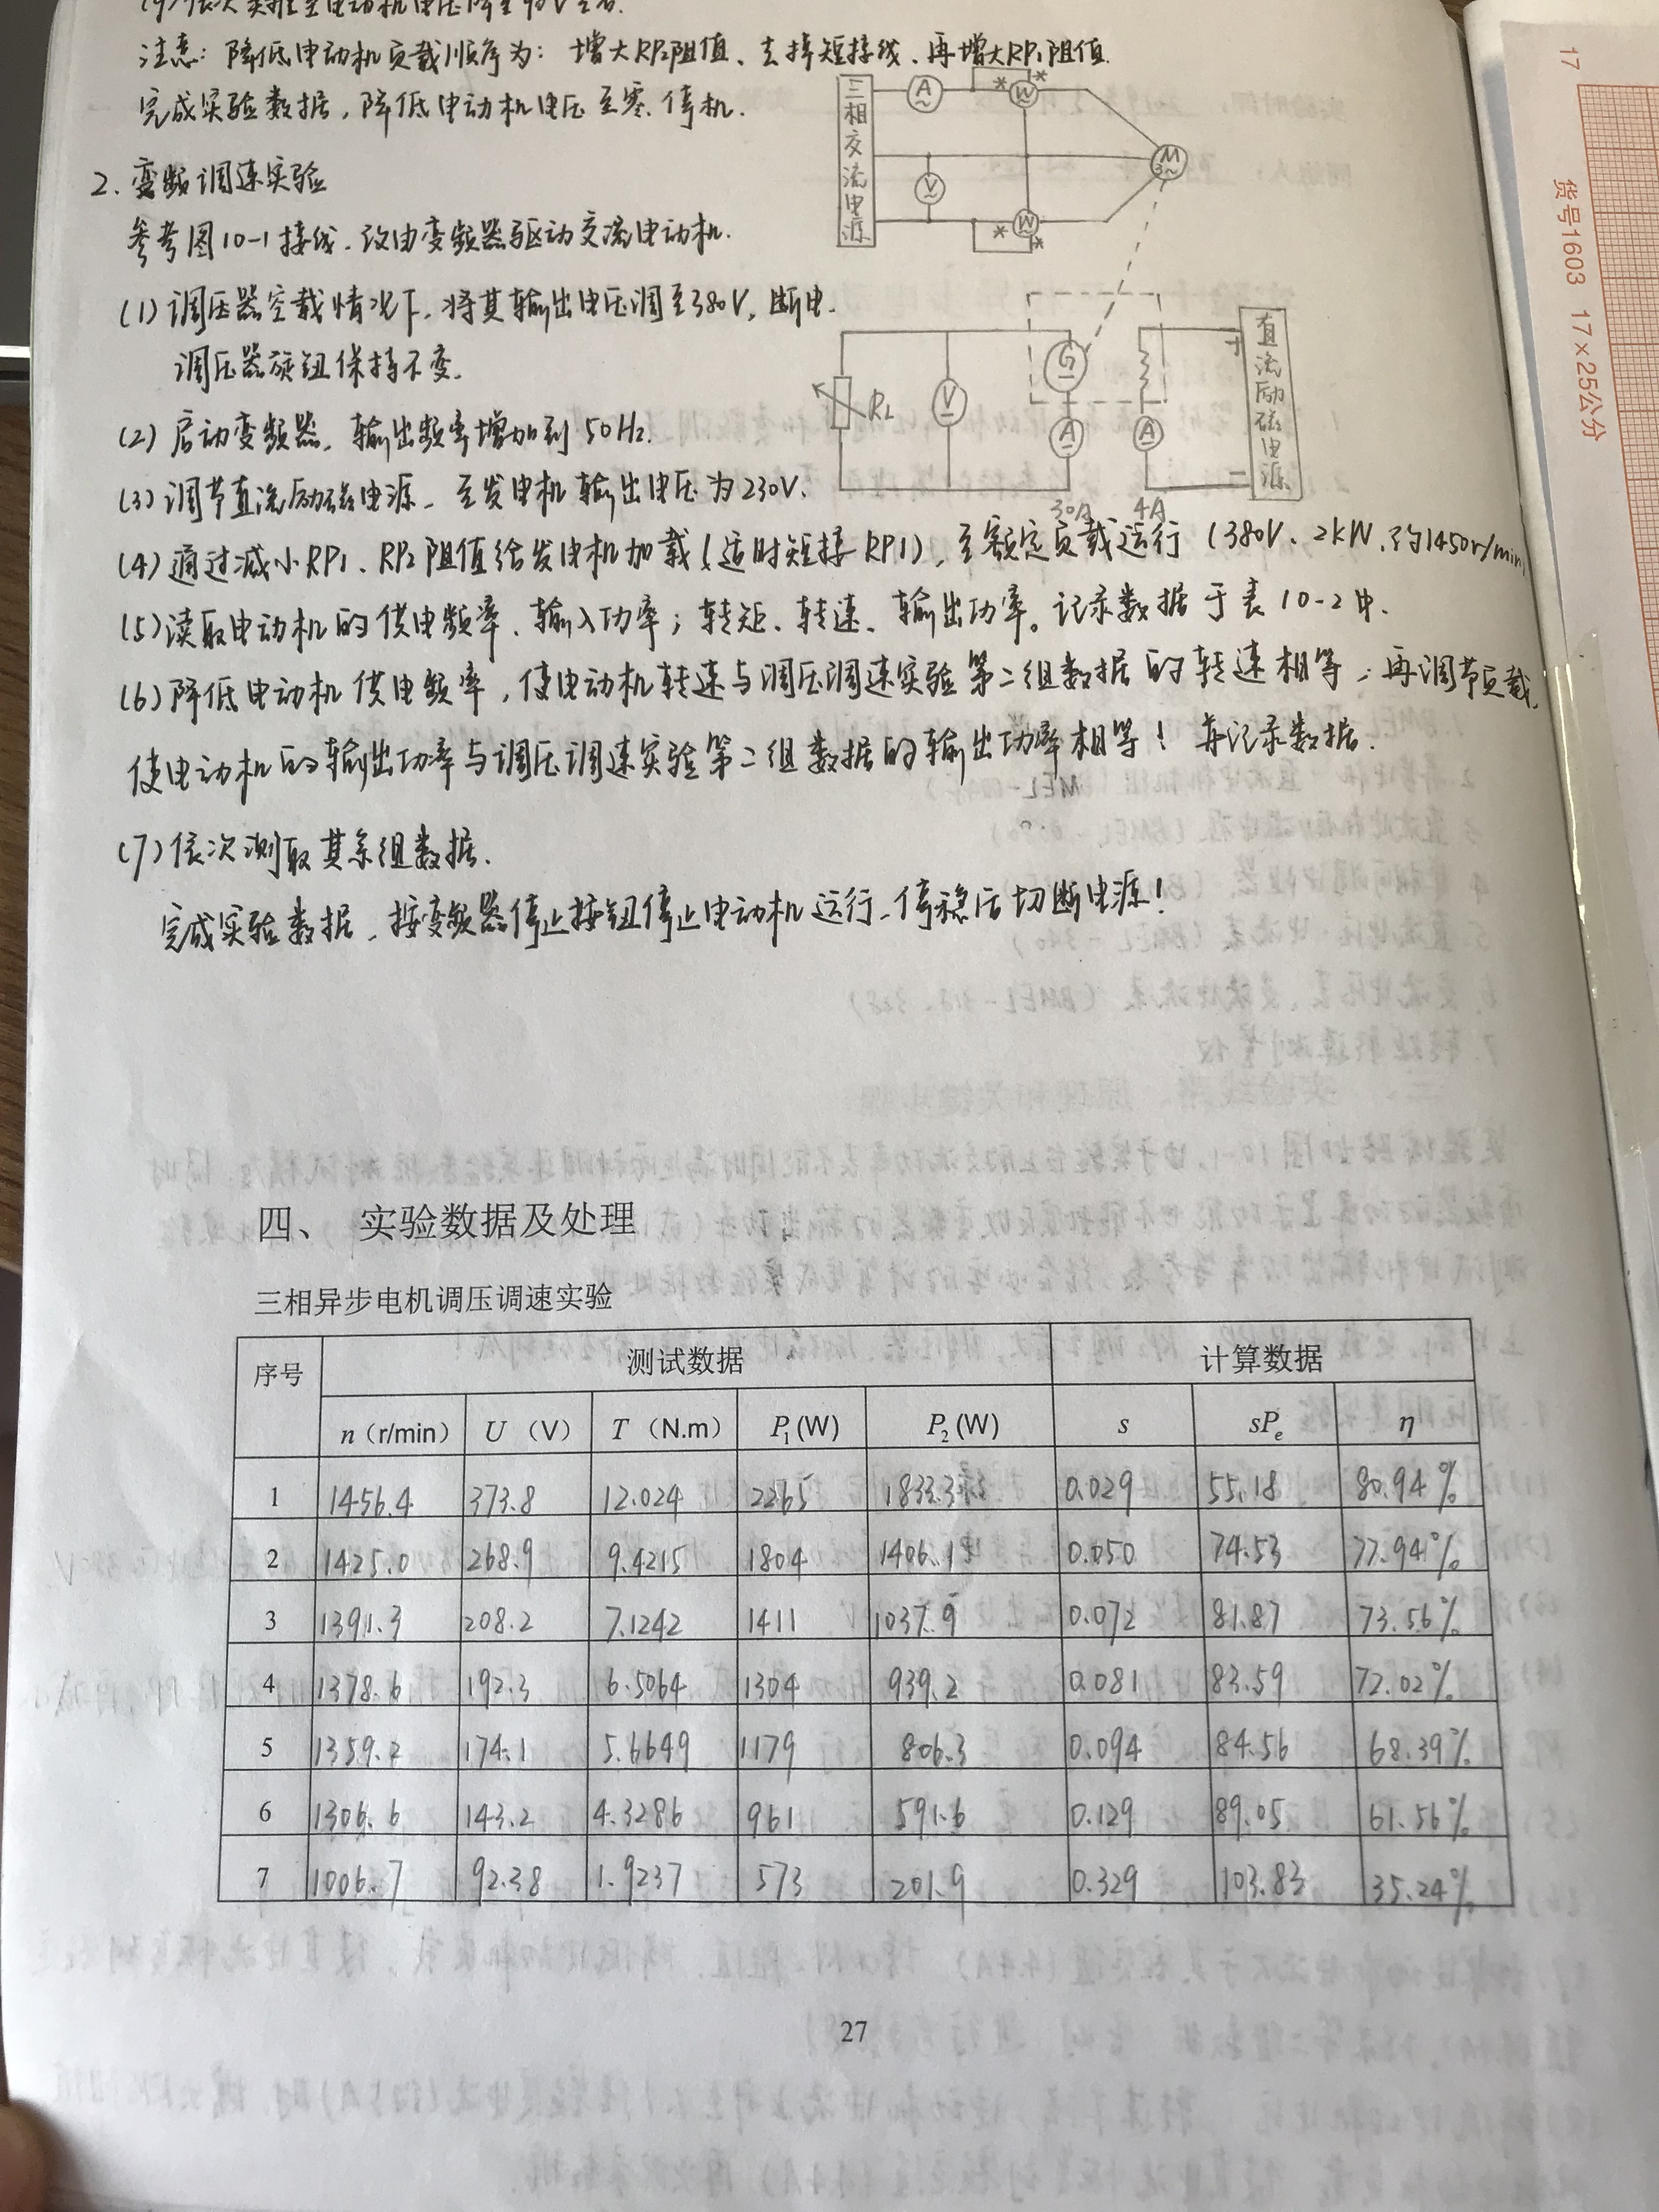 注意：降低电动机负载顺序为：增大RP2阻值、去掉短接线、再增大RP1阻值.
完成实验数据，降低电动机电压至零.停机.
2. 变频调速实验
参考图10-1接线.改由变频器驱动交流电动机.
(1) 调压器空载情况下，将其输出电压调至380V，断电.
调压器旋钮保持不变.
(2) 启动变频器，输出频率增加到50Hz.
(3) 调节直流励磁电源，至发电机输出电压为230V.
(4) 通过减小RP1、RP2阻值给发电机加载(适时短接RP1)，至额定负载运行(380V、2kW、约1450r/min)
(5) 读取电动机的供电频率、输入功率；转矩、转速、输出功率。记录数据于表10-2中.
(6) 降低电动机供电频率，使电动机转速与调压调速实验第二组数据的转速相等，再调节负载，
使电动机的输出功率与调压调速实验第二组数据的输出功率相等！再记录数据.
(7) 依次测取其余组数据.
完成实验数据，按变频器停止按钮停止电动机运行，停稳后切断电源！
三相交流电源
A
W
*
*
V
M
3~
W
*
*
RL
V
G
A
A
30A
4A
直流励磁电源
+
-
四、 实验数据及处理
三相异步电机调压调速实验
序号 测试数据 计算数据
n（r/min） U （V） T （N.m） P₁(W) P₂(W) s sPₑ η
1 1456.4 373.8 12.024 2265 1833.3 0.029 55.18 80.94%
2 1425.0 268.9 9.4215 1804 1406.1 0.050 74.53 77.94%
3 1391.3 208.2 7.1242 1411 1037.9 0.072 81.87 73.56%
4 1378.6 192.3 6.5064 1304 939.2 0.081 83.59 72.02%
5 1359.2 174.1 5.6649 1179 806.3 0.094 84.56 68.39%
6 1306.6 143.2 4.3286 961 591.6 0.129 89.05 61.56%
7 1006.7 92.38 1.9237 573 201.9 0.329 103.83 35.24%
27
17
货号1603 17×25公分